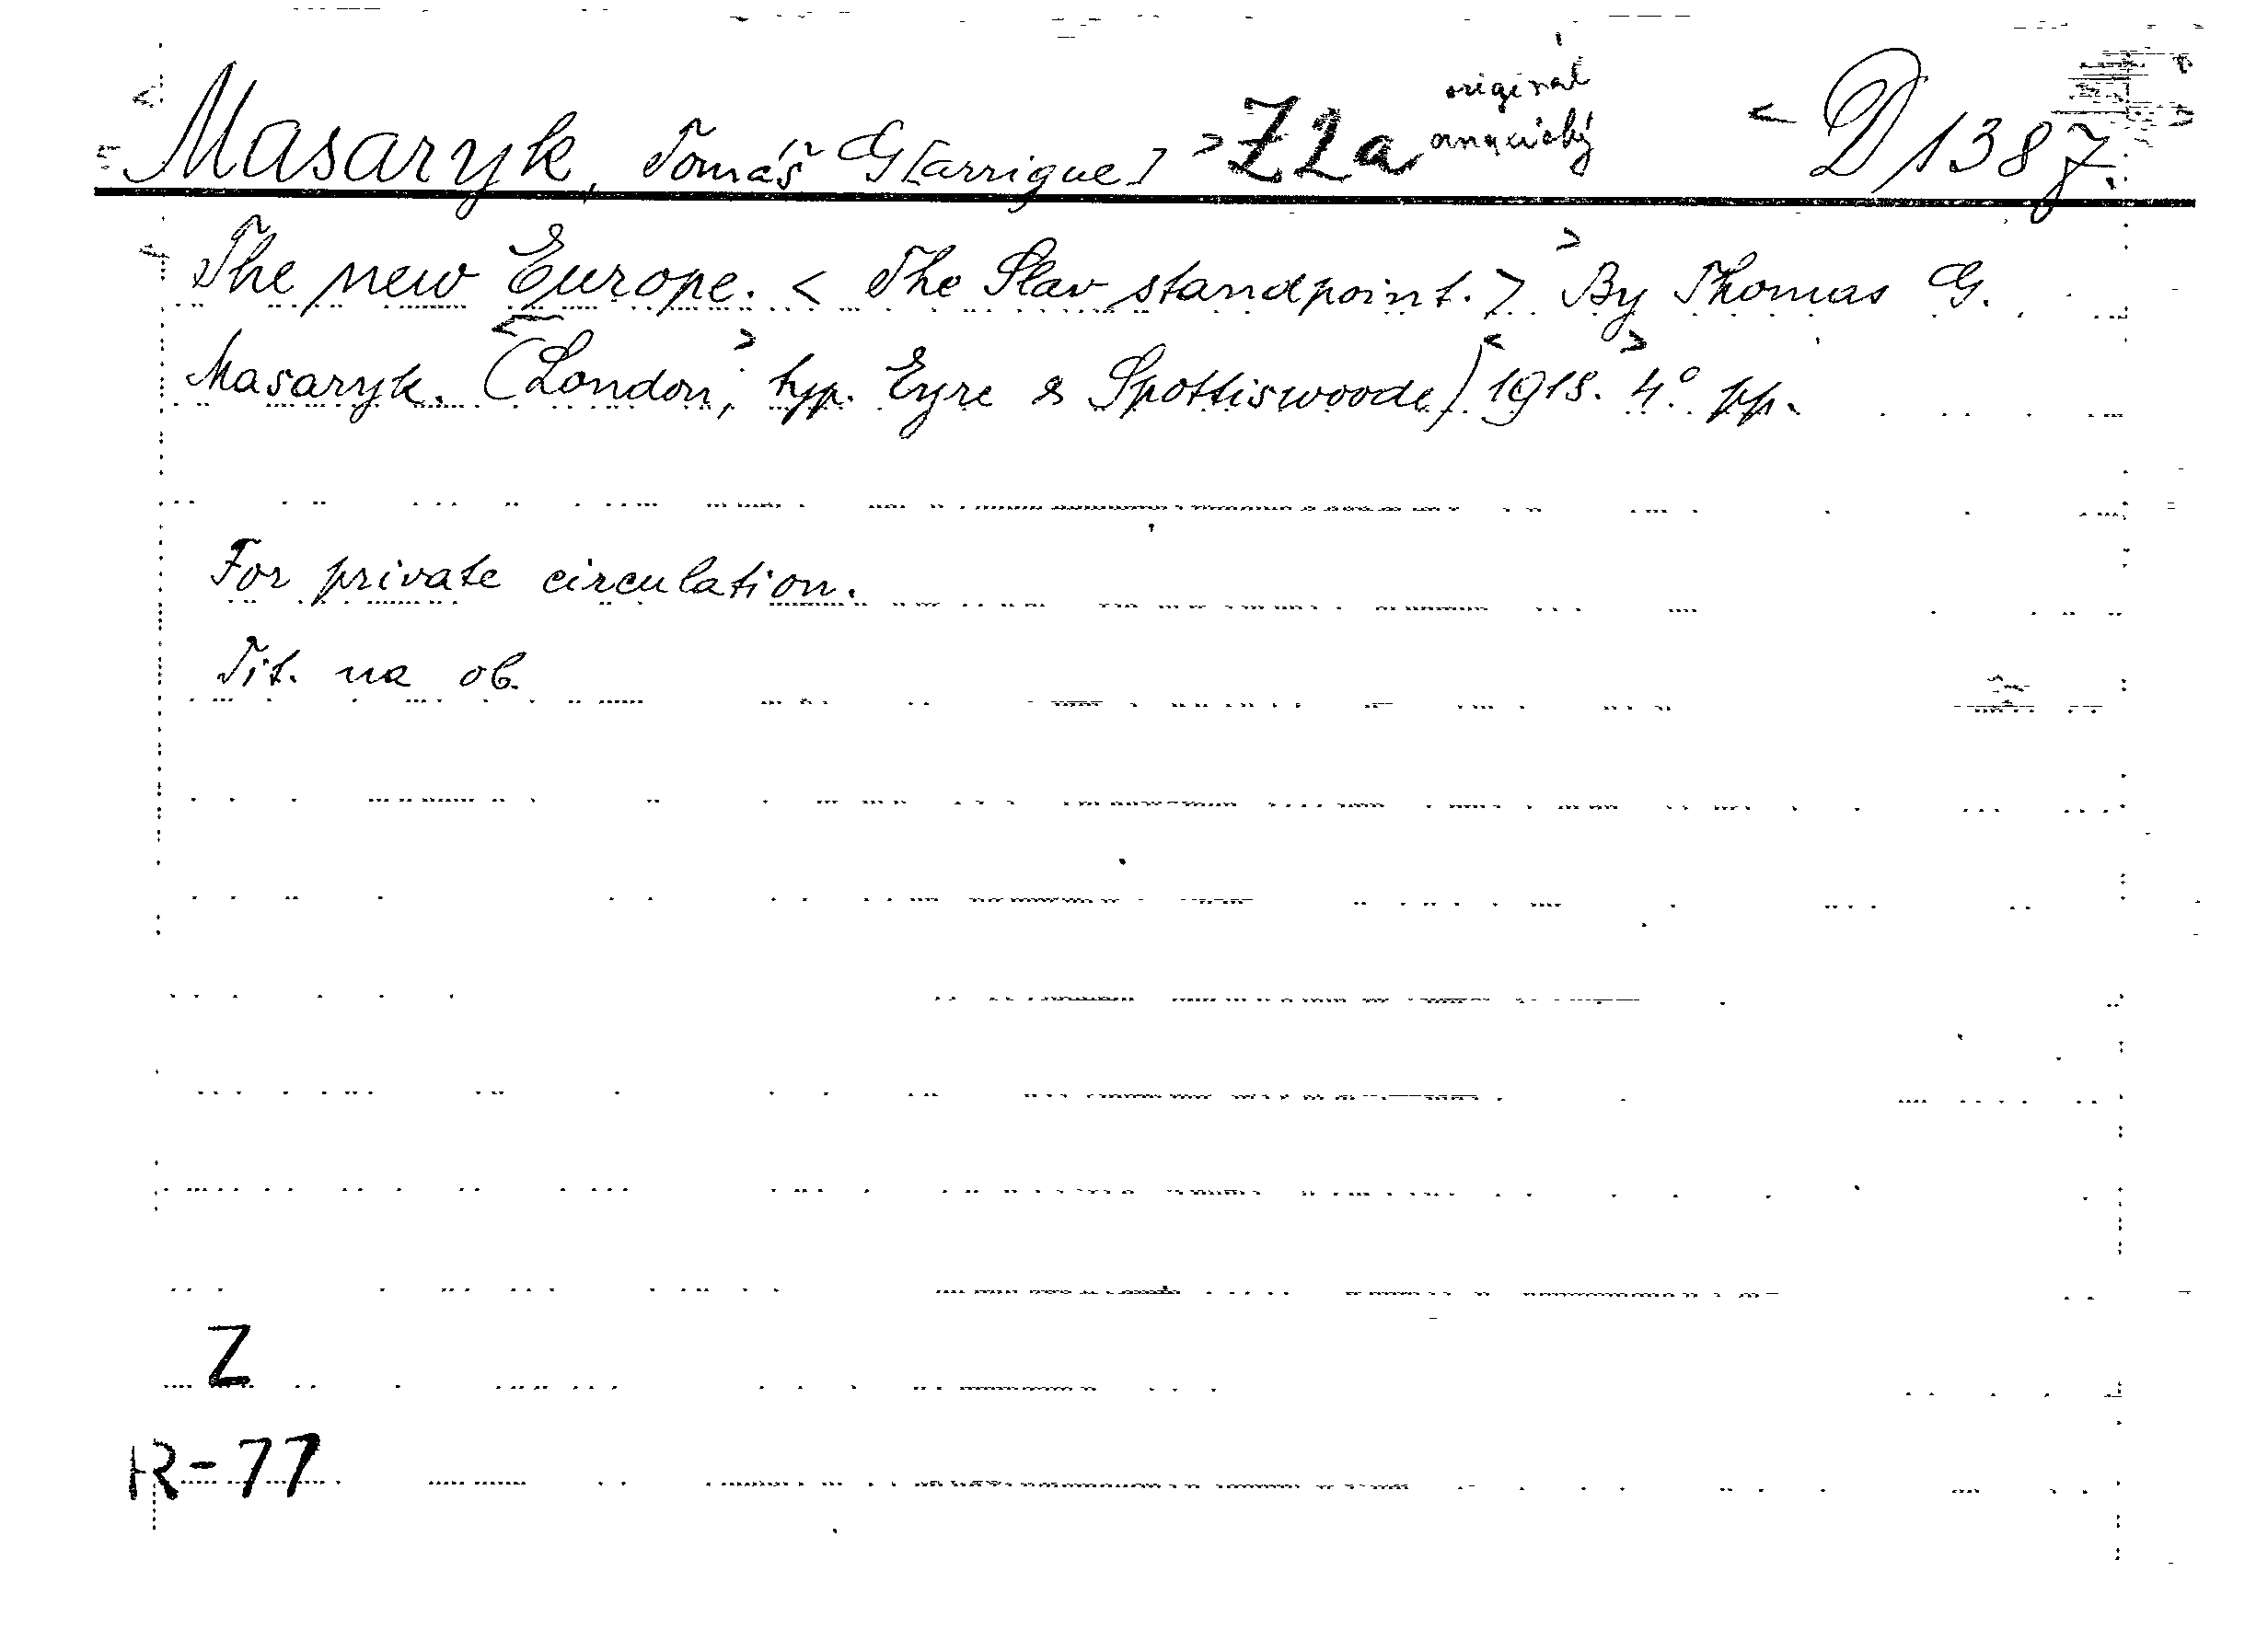 Masaryk, Tomáš G[arrigue] Z2a originál anglický D 1387.
The new Europe. < The Slav standpoint. > By Thomas G.
Masaryk. (London, typ. Eyre & Spottiswoode) 1918. 4° pp.
For private circulation.
Tit. na ob.
Z
R-77